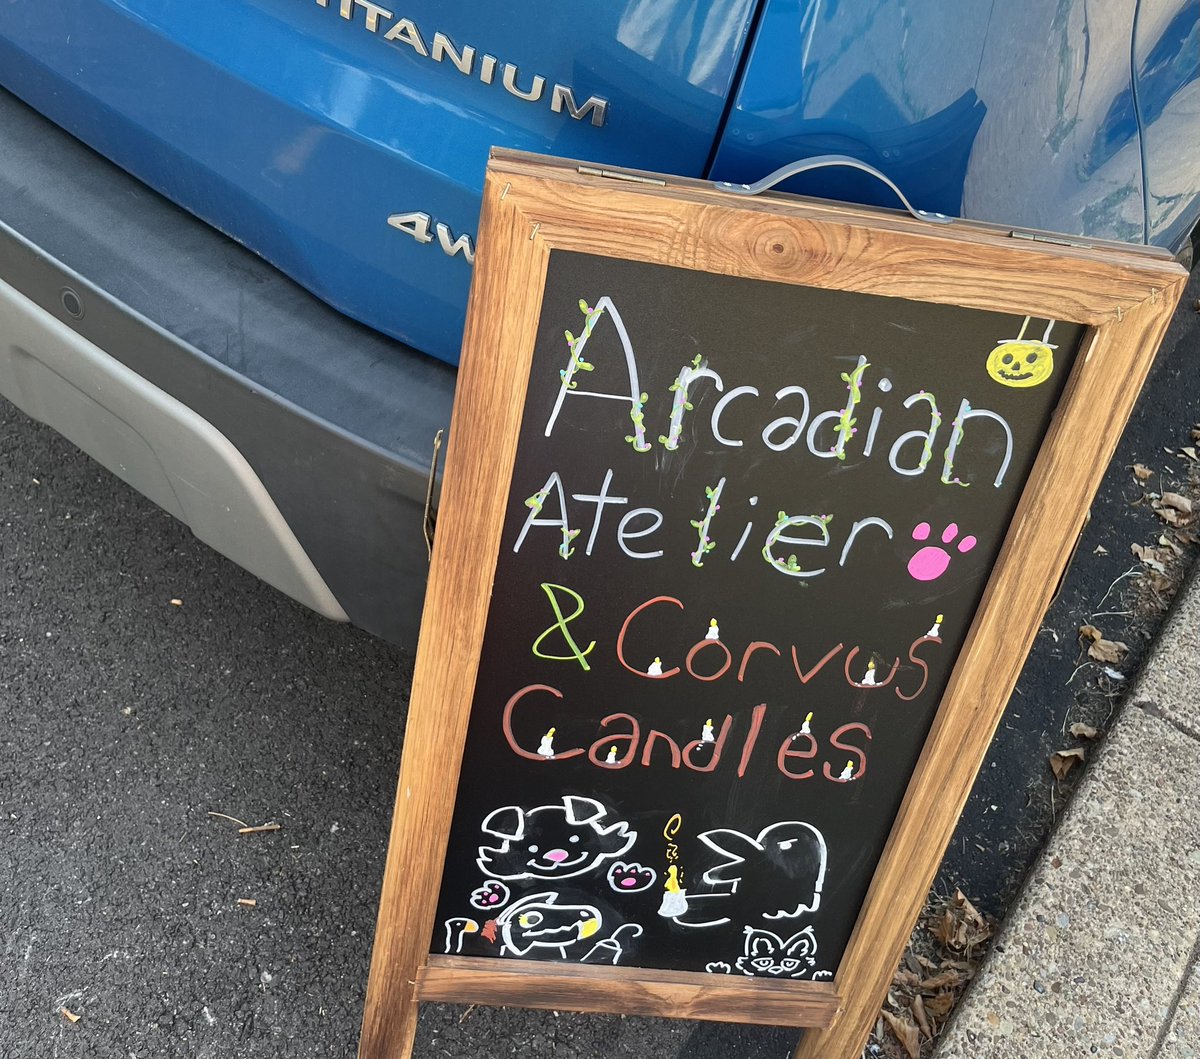 TITANIUM
4W
Arcadian
Atelier
& Corvus
Candles